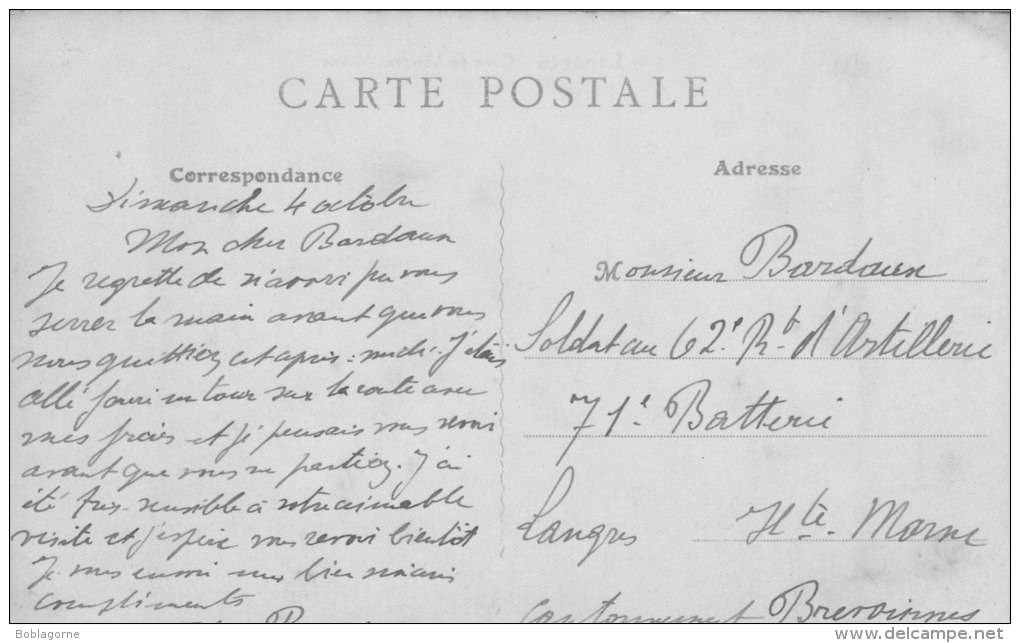 CARTE POSTALE
Correspondance
Dimanche 4 octobre
Mon cher Bardaux
Je regrette de n'avoir pu vous
serrer la main avant que vous
nous quittiez cet après-midi. J'étais
allé faire un tour sur la route avec
mes et je pensais vous revoir
avant que vous ne partiez. J'ai
été très sensible à votre aimable
visite et j'espère vous revoir bientôt
Je vous envoie mes bien
compliments
Adresse
Monsieur Bardaux
Soldat au 62e Rt d'Artillerie
71e Batterie
Langres Hte Marne
Cantonnement
Boblagorne
delcampe.net